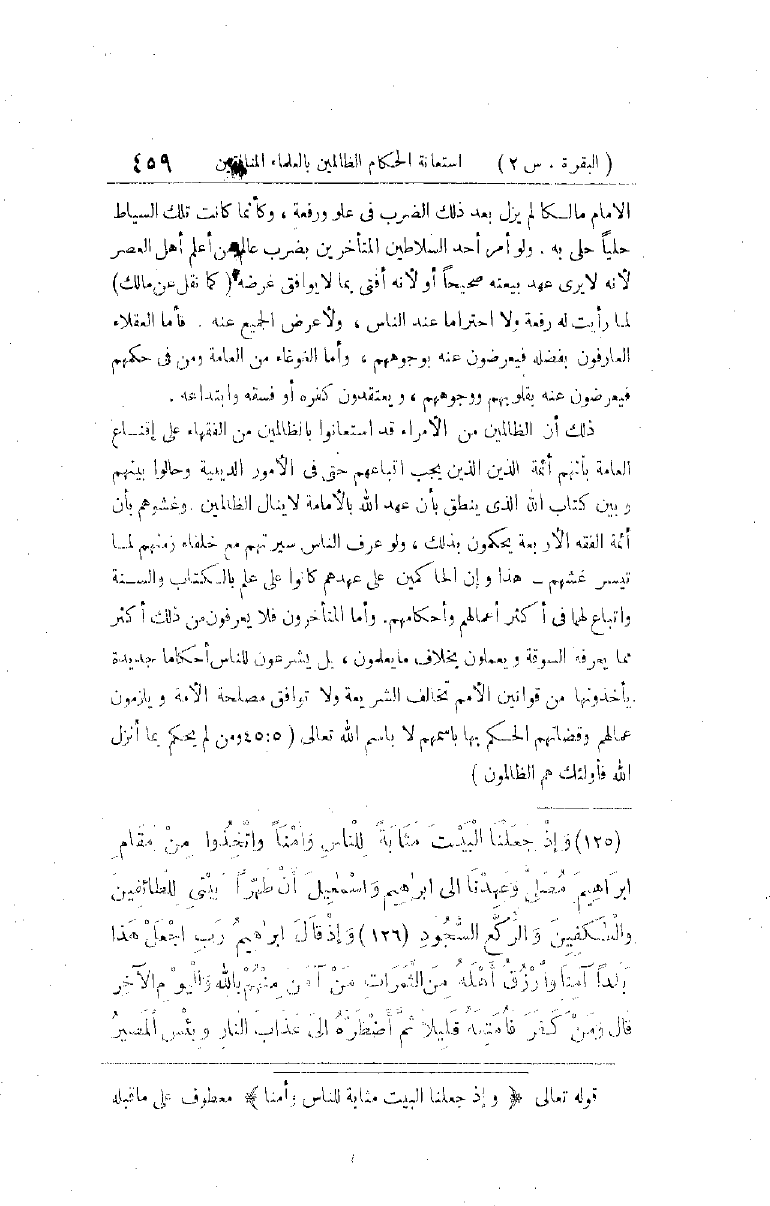 ( البقرة . س ٢ ) استعانة الحكام الظالمين بالعلماء المنافقين ٤٥٩
الامام مالكا لم يزل بعد ذلك الضرب فى علو ورفعة ، وكأنما كانت تلك السياط
حلياً حلى به . ولو أمر أحد السلاطين المتأخرين بضرب عالم من أعلم أهل العصر
لأنه لايرى عهد بيعته صحيحاً أو لأنه أفتى بما لايوافق غرضه ( كما نقل عن مالك )
لما رأيت له رفعة ولا احتراما عند الناس ، ولأعرض الجميع عنه . فأما العقلاء
العارفون بفضله فيعرضون عنه بوجوههم ، وأما الغوغاء من العامة ومن فى حكمهم
فيعرضون عنه بقلوبهم ووجوههم ، ويعتقدون كفره أو فسقه وابتداعه .
ذلك أن الظالمين من الأمراء قد استعانوا بالظالمين من الفقهاء على إقناع
العامة بأنهم أئمة الدين الذين يجب اتباعهم حتى فى الأمور الدينية وحالوا بينهم
وبين كتاب الله الذى ينطق بأن عهد الله بالأمامة لاينال الظالمين . وغشوهم بأن
أئمة الفقه الأربعة يحكمون بذلك ، ولو عرف الناس سيرتهم مع خلفاء زمنهم لما
تيسر غشهم ــ هذا وإن الحاكمين على عهدهم كانوا على علم بالكتاب والسنة
واتباع لهما فى أكثر أعمالهم وأحكامهم. وأما المتأخرون فلا يعرفون من ذلك أكثر
مما يعرفه السوقة ويعملون بخلاف مايعلمون ، بل يشرعون للناس أحكاما جديدة
يأخذونها من قوانين الأمم تخالف الشريعة ولا توافق مصلحة الأمة ويلزمون
عمالهم وقضاتهم الحكم بها باسمهم لا باسم الله تعالى ( ٤٥:٥ ومن لم يحكم بما أنزل
الله فأولئك هم الظالمون )
(١٢٥) وَإِذْ جَعَلْنَا الْبَيْتَ مَثَابَةً لِلْنَّاسِ وَأَمْنَاً واتَّخِذُوا مِنْ مَقَامِ
ابرَاهِيمَ مُصَلَّى وَعَهِدْنَا الى ابرهيم وَاسْمٰعِيلَ أَنْ طَهِّرَا بَيْتِى لِلطَائِفِينَ
والْعٰـكِفِينَ وَالرُكَّعِ السُّجُودِ (١٢٦) وَإِذْ قَالَ ابرهيمُ رَبِ اجْعَلْ هَذَا
بَلَداً آمِنَا وَارْزُقْ أَهْلَهُ مِنَ الثَّمَرَاتِ مَنْ آمَنَ مِنْهُمْ بِالله وَالْيَوْمِ الآخِرِ
قال وَمَنْ كَفَرَ فَأُمَتِّعُهُ قَلِيلاً ثُمَّ أَضْطَرُّهُ الىَ عَذَابَ النارِ وبِئْسَ الْمَصِيرُ
قوله تعالى ﴿ وإذ جعلنا البيت مثابة للناس وأمنا ﴾ معطوف على ماقبله